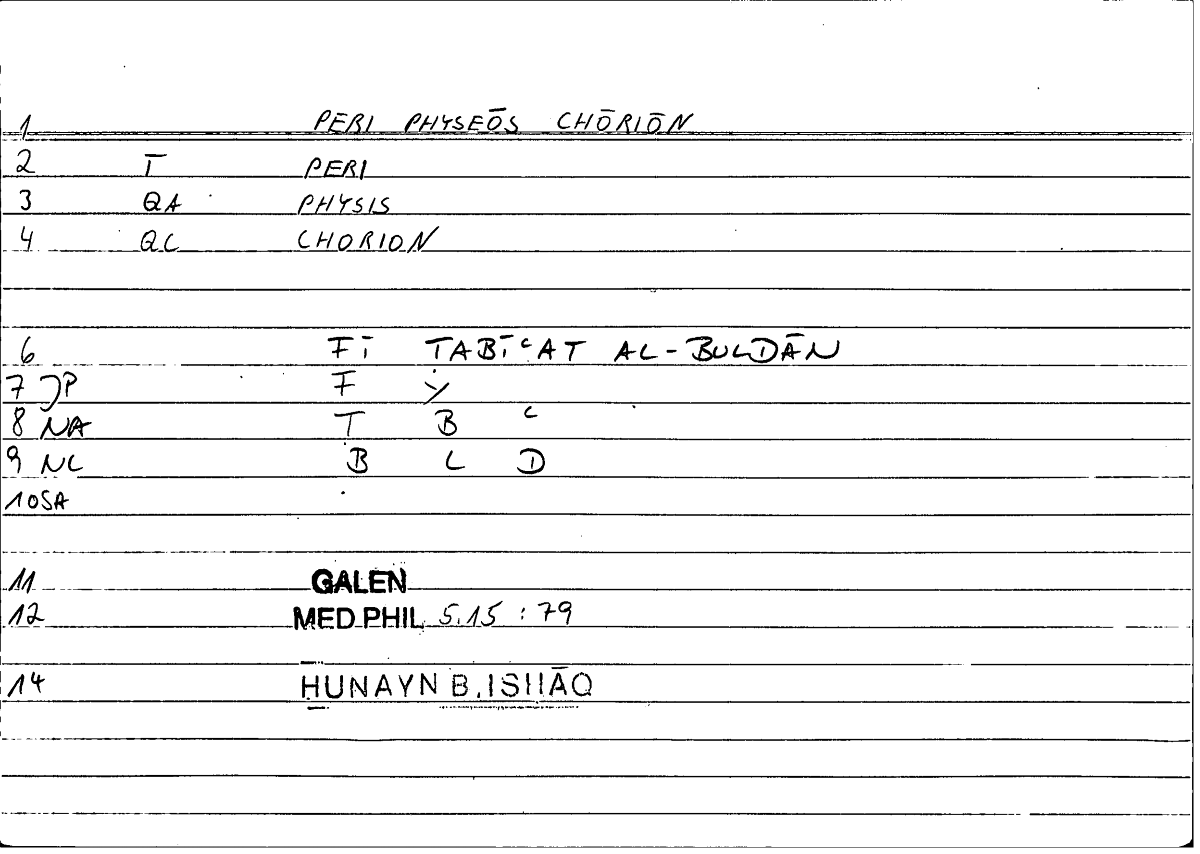 1 PERI PHYSEŌS CHŌRIŌN
2 T PERI
3 QA PHYSIS
4 QC CHORION
6 FĪ TABĪʿAT AL-BULDĀN
7 JP F Y
8 NA T B ʿ
9 NC B L D
10 SA
11 GALEN
12 MED PHIL 5.15 : 79
14 ḤUNAYN B. ISḤĀQ